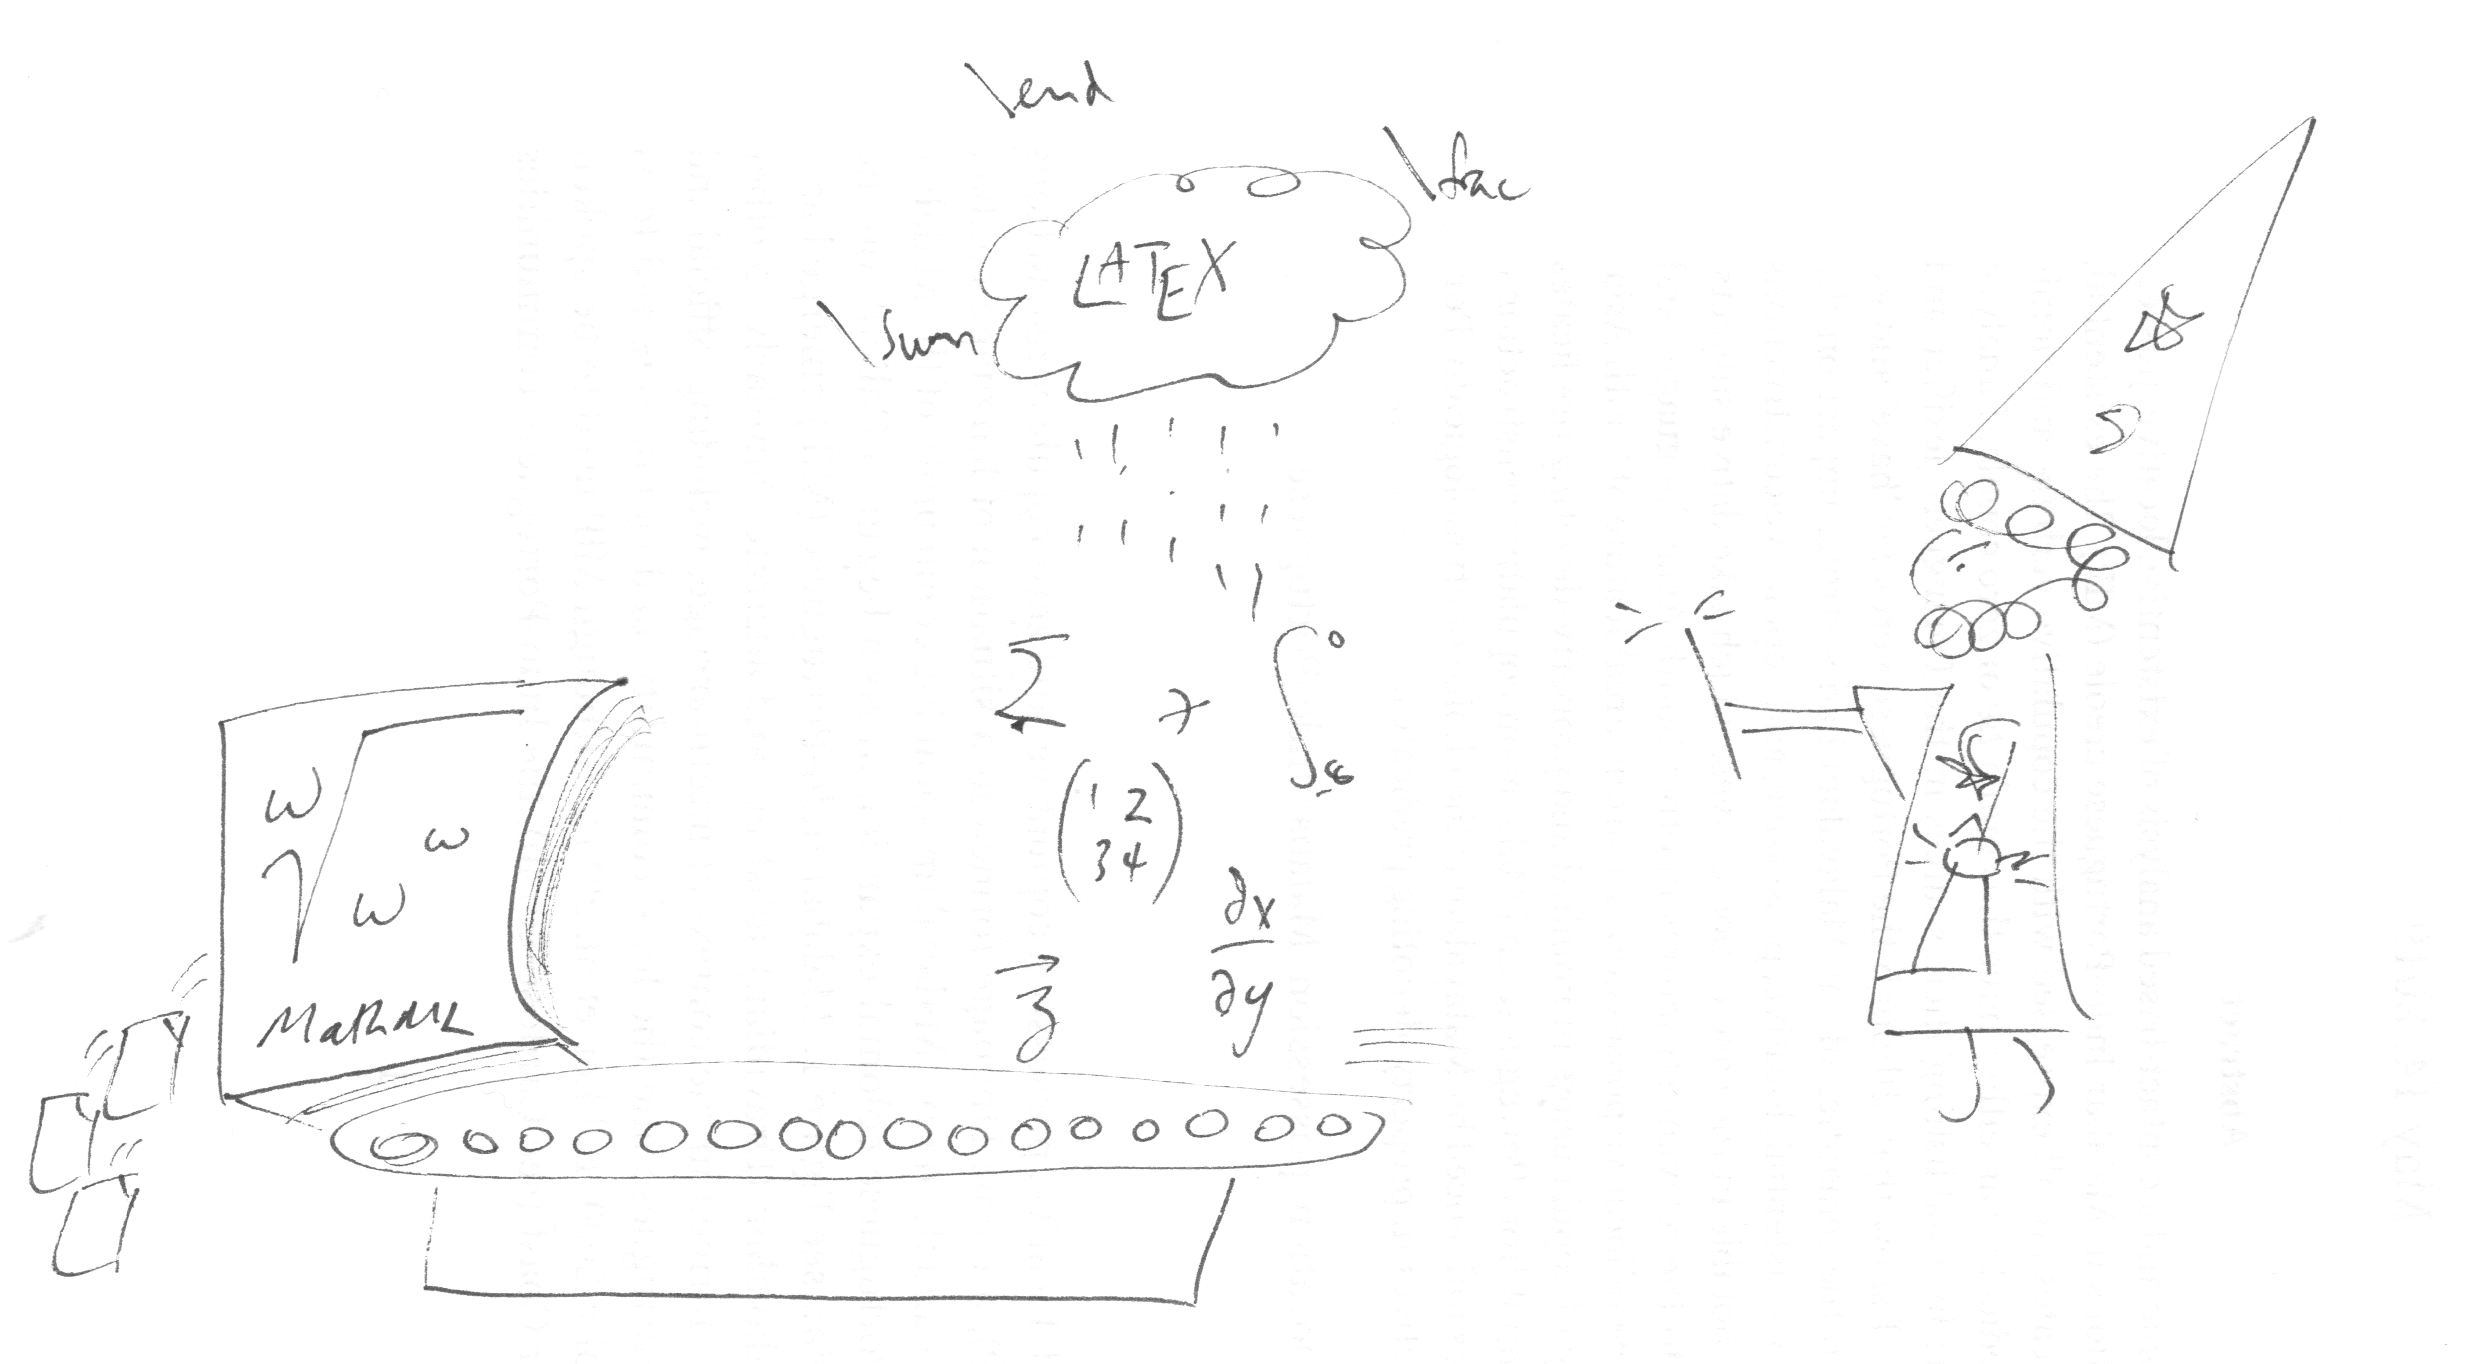 \end
\frac
LATEX
\sum
Σ + ∫ 0 -∞
( 1 2
3 4 )
∂x
∂y
→
z
W W W
MathML